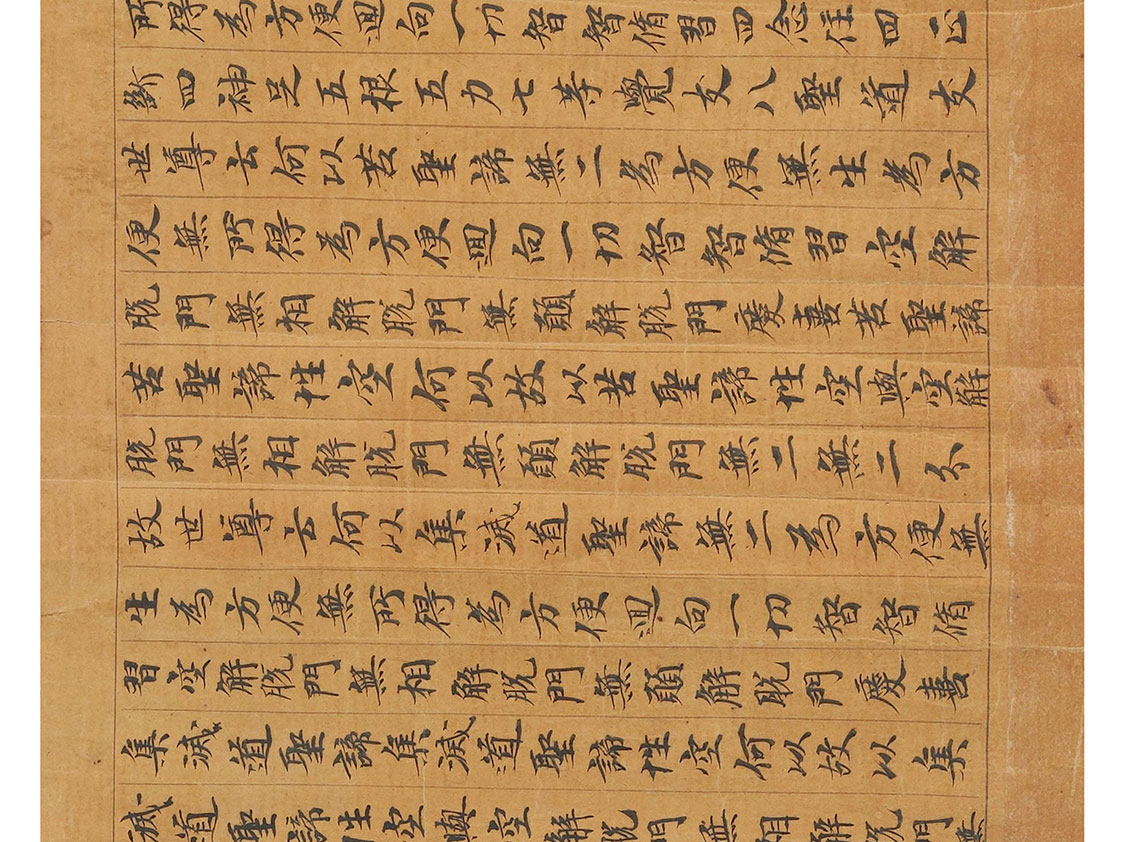 所得為方便迴向一切智智脩習四念住四正
斷四神足五根五力七等覺支八聖道支
世尊云何以苦聖諦無二為方便無生為方
便無所得為方便迴向一切智智脩習空解
脫門無相解脫門無願解脫門慶喜苦聖諦
苦聖諦性空何以故以苦聖諦性空與空解
脫門無相解脫門無願解脫門無二無二分
故世尊云何以集滅道聖諦無二為方便無
生為方便無所得為方便迴向一切智智脩
習空解脫門無相解脫門無願解脫門慶喜
集滅道聖諦集滅道聖諦性空何以故以集
滅道聖諦性空與空解脫門無相解脫門無